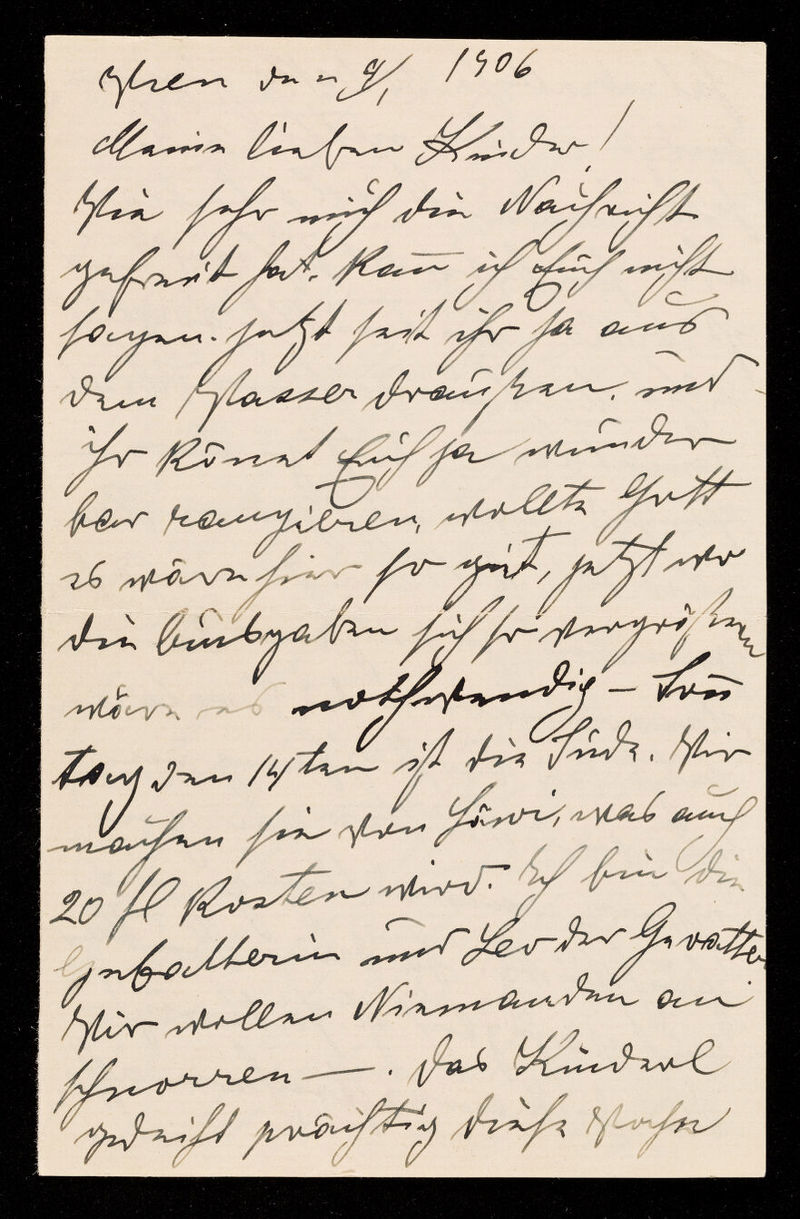 Wien den 9/1 1906
Meine lieben Kinder!
Wie sehr mich die Nachricht
gefreut hat, kan̄ ich Euch nicht
sagen. jetzt seit ihr ja aus
dem Wasser draußen, und
ihr könnt Euch ja wunder
bar rangieren, wollte Gott
es wäre hier so gut, jetzt wo
die Ausgaben sich so vergrößern
wäre es nothwendig – Son̄
tag den 14ten ist die Sude. Wir
machen sie von Löwi, was auch
20 fl kosten wird. Ich bin die
Gevatterin und Leo der Gevatter
Wir wollen Niemanden an
schnorren — . Das Kinderl
gedeiht prächtig diese Woche